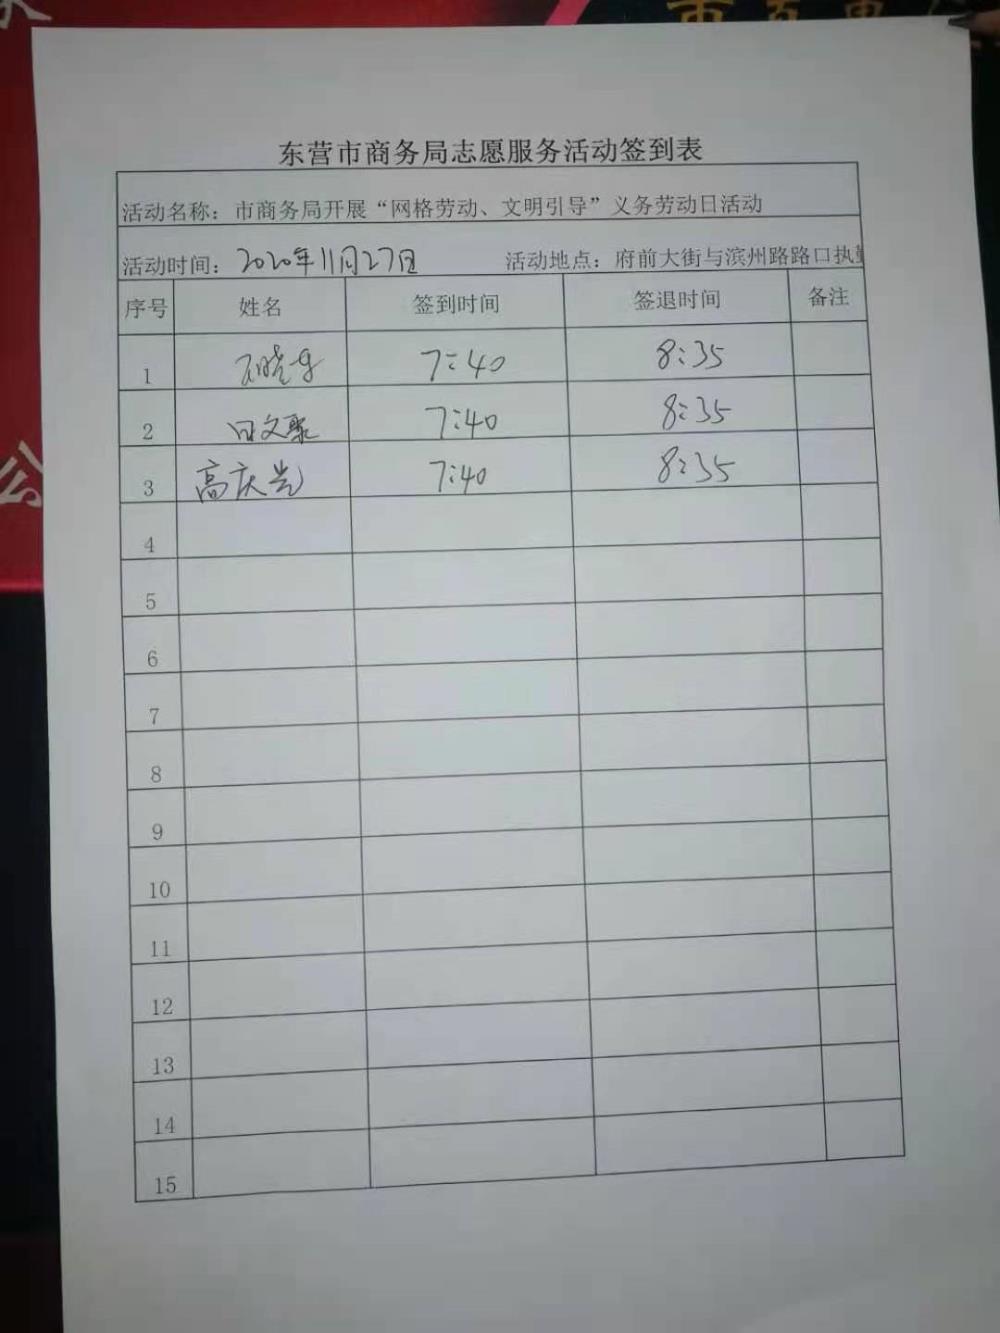 东营市商务局志愿服务活动签到表
活动名称：市商务局开展“网格劳动、文明引导”义务劳动日活动
活动时间：2020年11月27日 活动地点：府前大街与滨州路路口执勤
序号 姓名 签到时间 签退时间 备注
1 7:40 8:35
2 文聚 7:40 8:35
3 高庆光 7:40 8:35
4
5
6
7
8
9
10
11
12
13
14
15
公